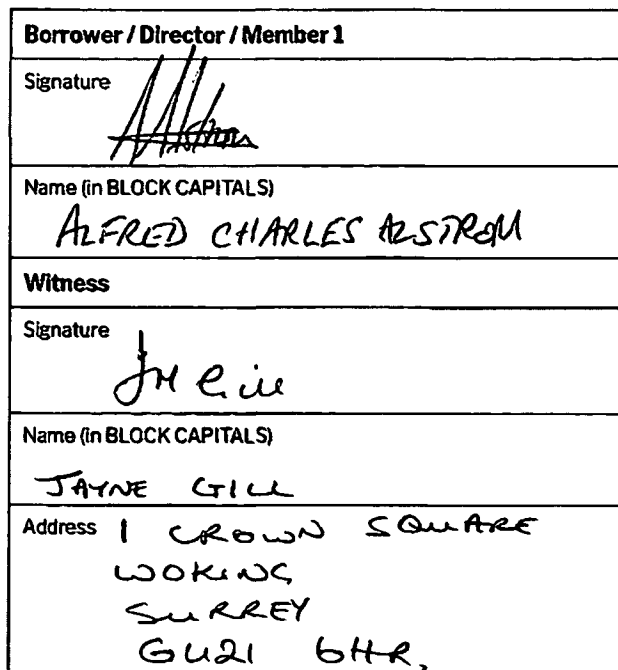 Borrower / Director / Member 1
Signature
Name (in BLOCK CAPITALS)
ALFRED CHARLES ALSTROM
Witness
Signature
JM Gill
Name (in BLOCK CAPITALS)
JAYNE GILL
Address 1 CROWN SQUARE
WOKING
SURREY
GU21 6HR.